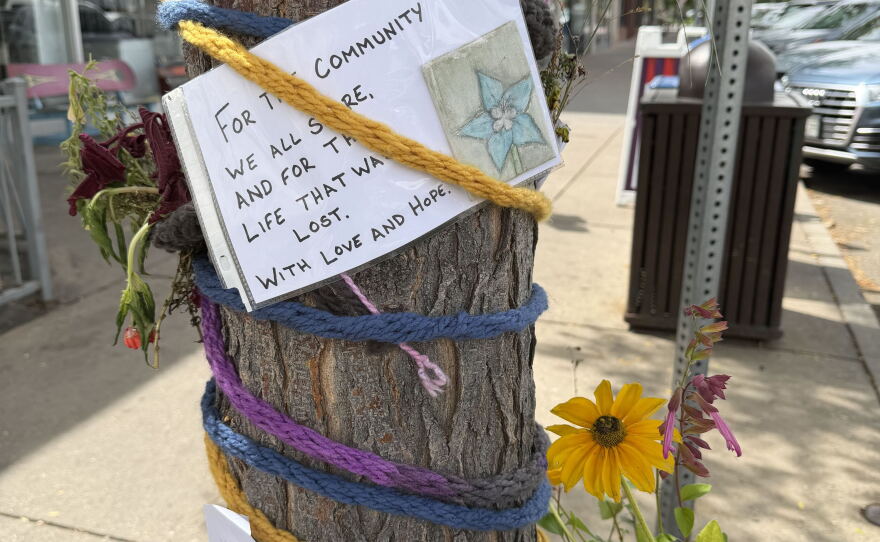 FOR THE COMMUNITY
WE ALL SHARE,
AND FOR THE
LIFE THAT WAS
LOST.
WITH LOVE AND HOPE.